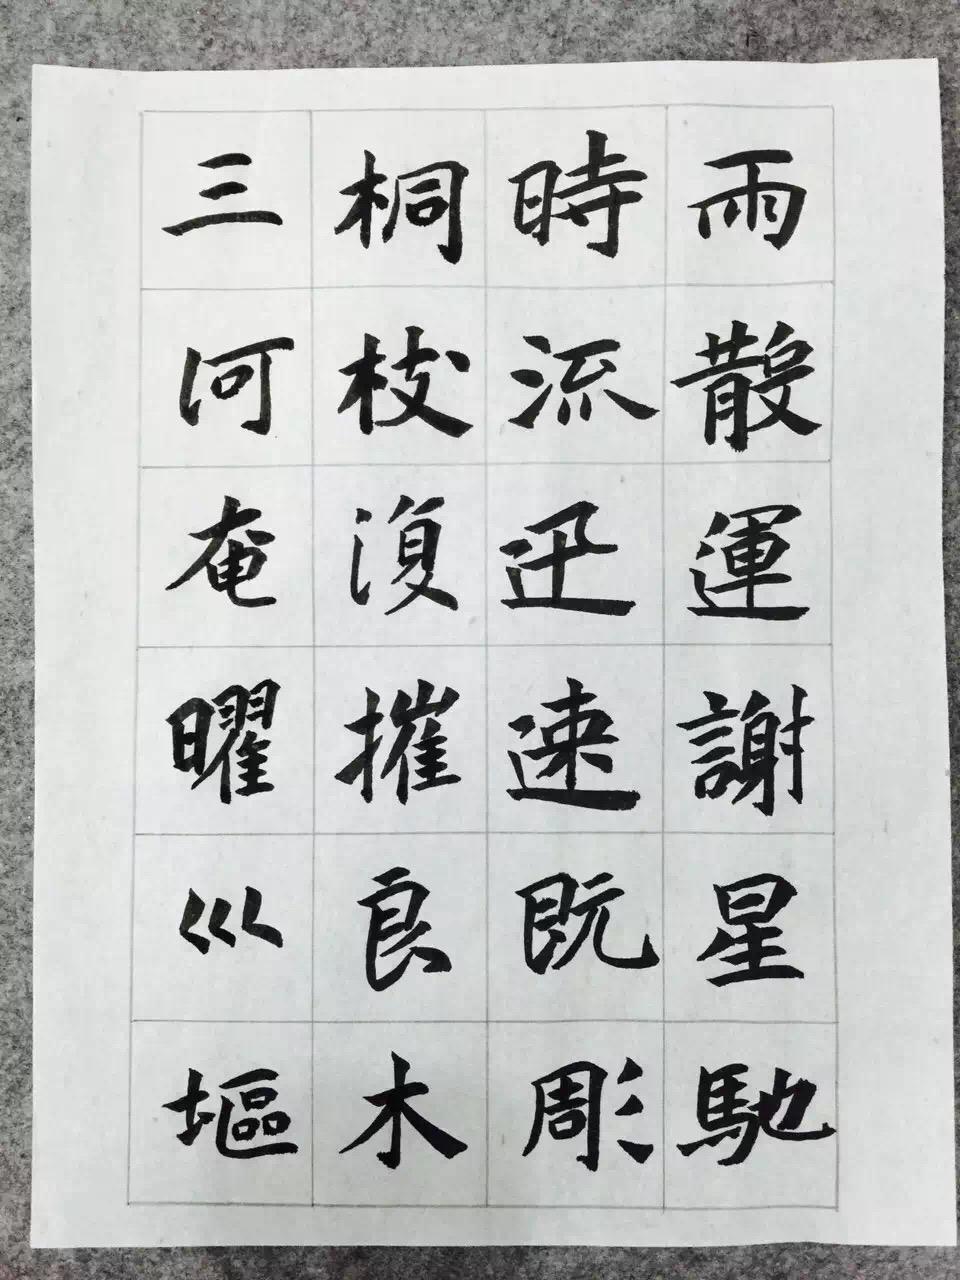 雨散運謝星馳
時流迅速既彫
桐枝復摧良木
三河奄曜巛塸